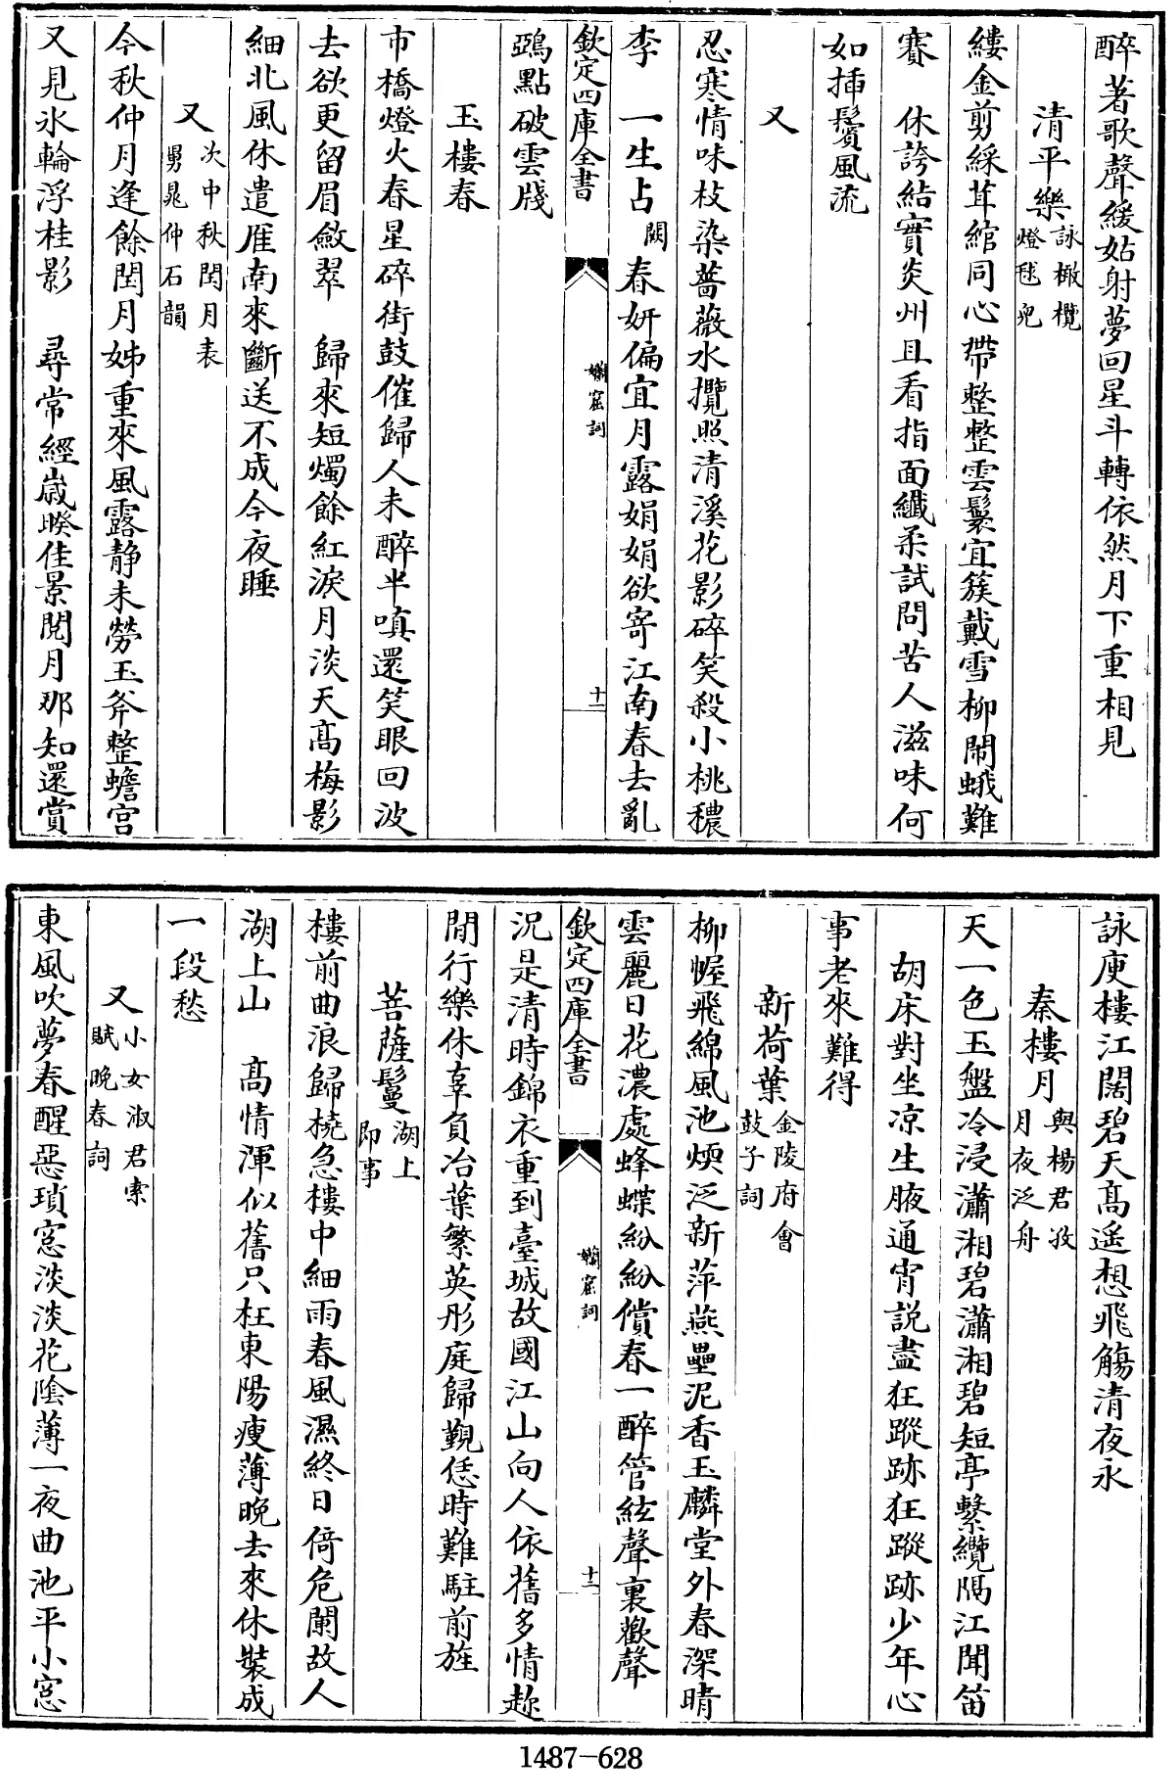 醉著歌聲緩姑射夢回星斗轉依然月下重相見
清平樂詠橄欖燈毬兒
縷金剪綵茸綰同心帶整整雲鬟宜簇戴雪柳鬧蛾難
賽　休誇結實炎州且看指面纖柔試問苦人滋味何
如插鬢風流
又
忍寒情味枝染薔薇水攬照清溪花影碎笑殺小桃穠
李　一生占闕春妍偏宜月露娟娟欲寄江南春去亂
欽定四庫全書　嬾窟詞　十一
鴉點破雲牋
玉樓春
市橋燈火春星碎街鼓催歸人未醉半嗔還笑眼回波
去欲更留眉斂翠　歸來短燭餘紅淚月淡天高梅影
細北風休遣雁南來斷送不成今夜睡
又次中秋閏月表舅晁仲石韻
今秋仲月逢餘閏月姊重來風露靜未勞玉斧整蟾宮
又見氷輪浮桂影　尋常經歲睽佳景閱月那知還賞
詠庾樓江闊碧天高遥想飛觴清夜永
秦樓月與楊君孜月夜泛舟
天一色玉盤冷浸瀟湘碧瀟湘碧短亭繫纜隔江聞笛
　胡床對坐凉生腋通宵説盡狂蹤跡狂蹤跡少年心
事老來難得
新荷葉金陵府會鼓子詞
柳幄飛綿風池煗泛新萍燕壘泥香玉麟堂外春深晴
雲麗日花濃處蜂蝶紛紛償春一醉管絃聲裏歡聲
欽定四庫全書　嬾窟詞　十二
況是清時錦衣重到臺城故國江山向人依舊多情趂
閒行樂休辜負冶葉繁英彤庭歸覲恁時難駐前旌
菩薩鬘湖上即事
樓前曲浪歸橈急樓中細雨春風濕終日倚危闌故人
湖上山　高情渾似舊只枉東陽瘦薄晚去來休裝成
一段愁
又小女淑君索賦晚春詞
東風吹夢春醒惡瑣窓淡淡花陰薄一夜曲池平小窓
1487-628